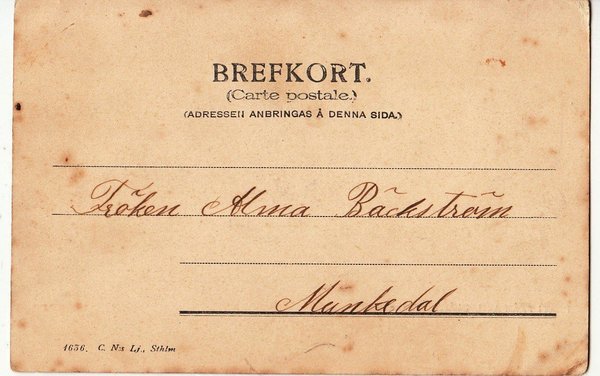 BREFKORT.
(Carte postale.)
(ADRESSEN ANBRINGAS Å DENNA SIDA.)
Fröken Alma Bäckström
Munkedal
1656. C. N:s Lj., Sthlm